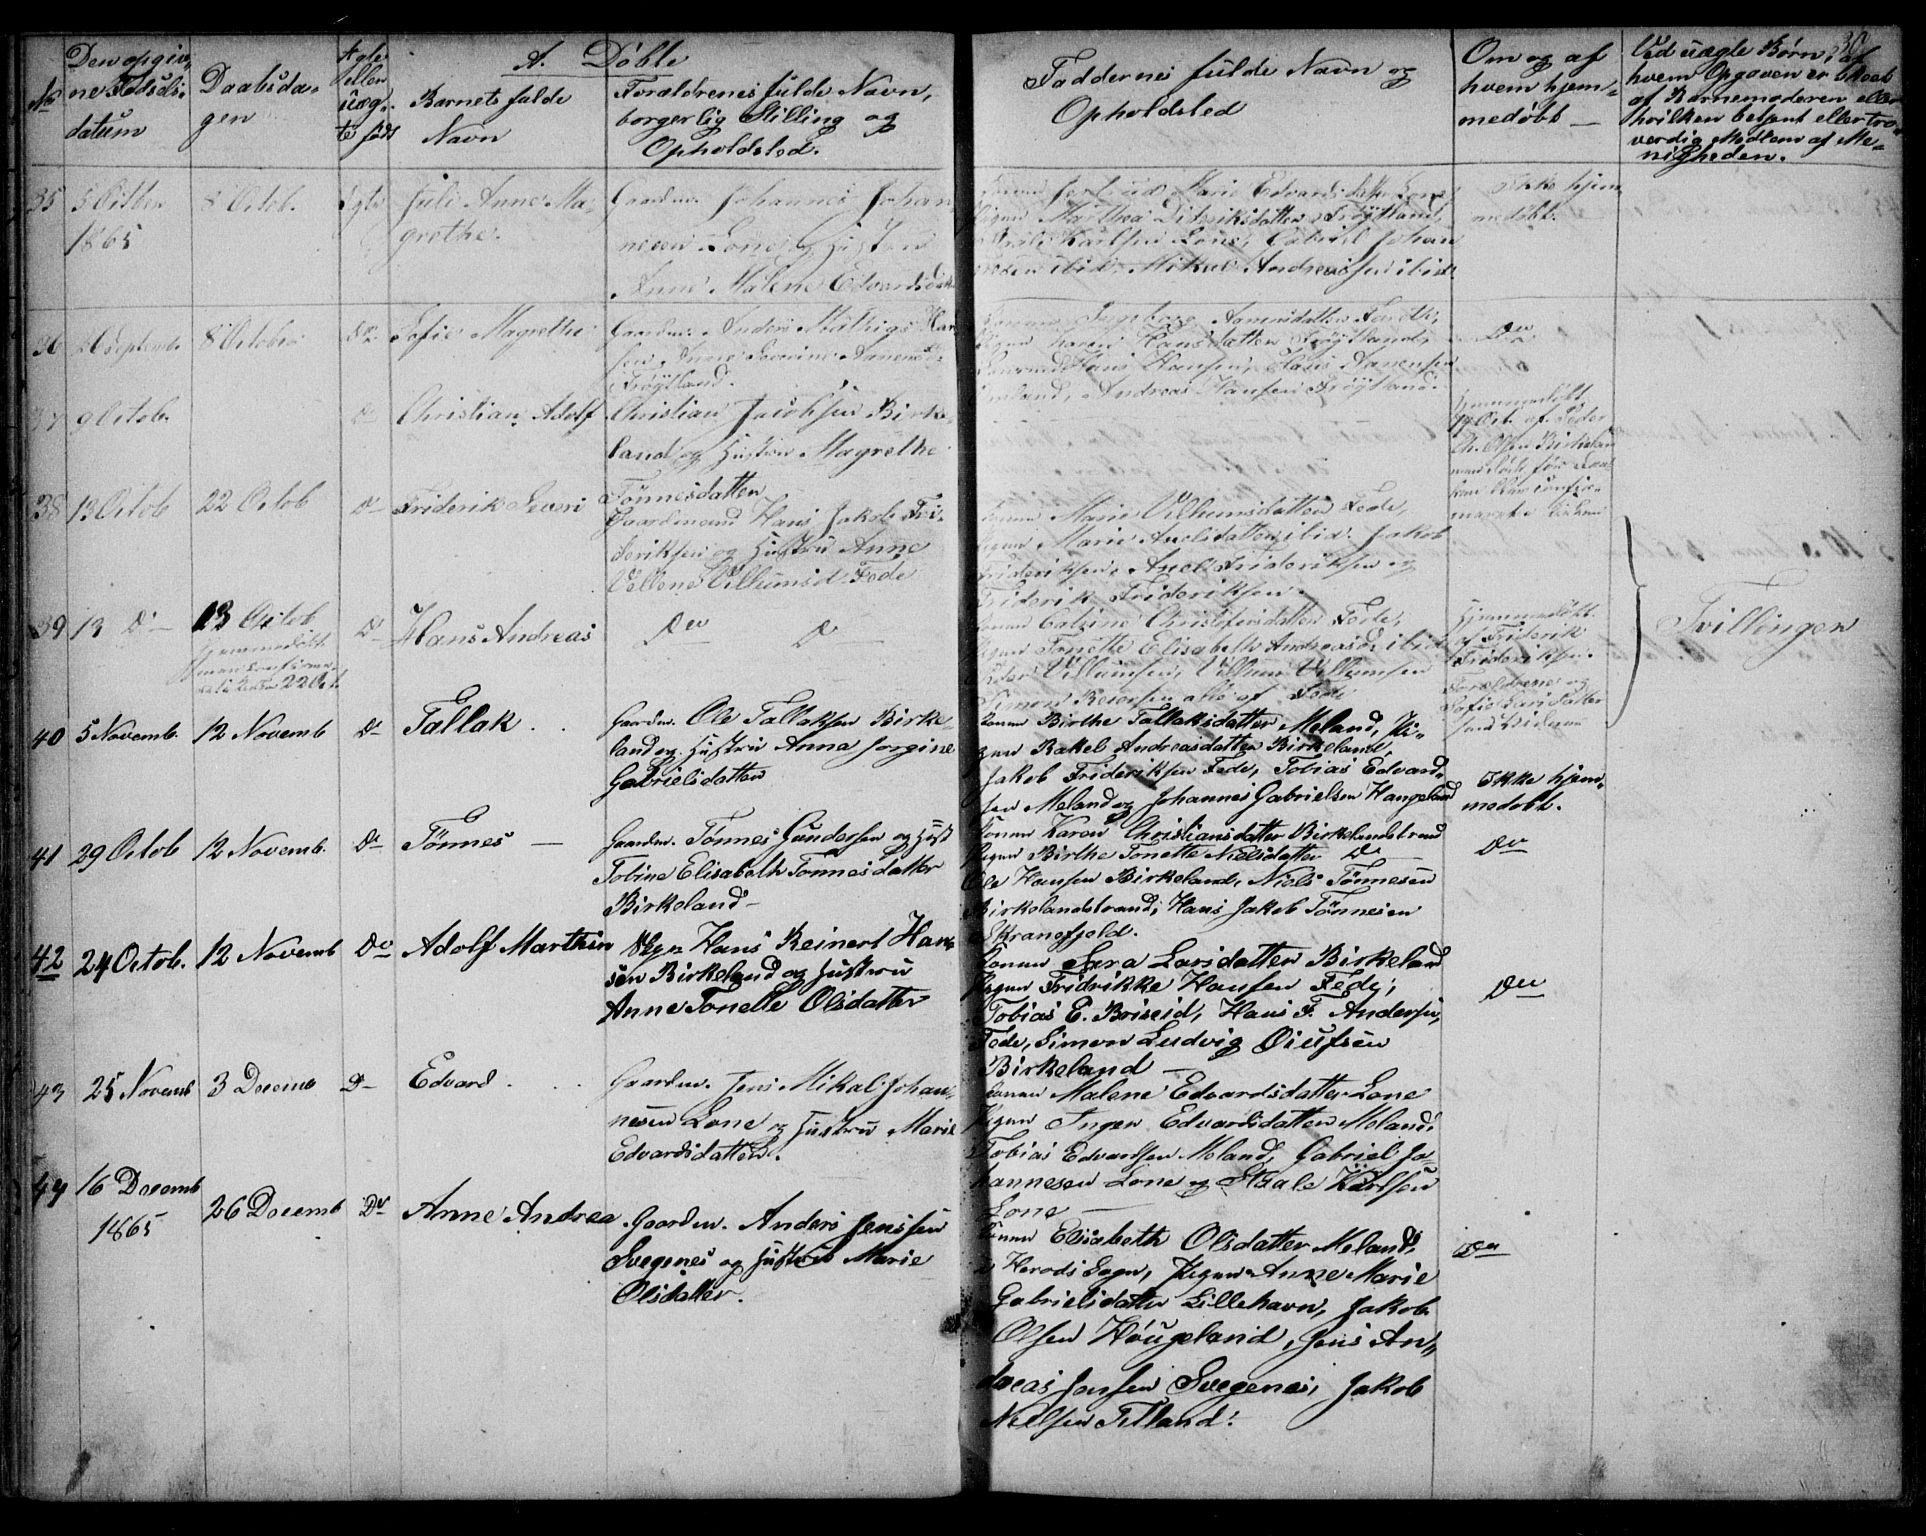 30
A. Døbte
No
Den opgiv-
ne Fødsels-
datum
Daabsda-
gen
Ægte
eller
uæg-
te født
Barnets fulde
Navn
Forældrenes fulde Navn,
borgerlig Stilling og
Opholdsted.
Faddernes fulde Navn og
Opholdsted
Om og af
hvem hjem-
medøbt
Ved uægte Børn, af
hvem Opgaven er
af Barnemoderen eller
hvilken betjent eller tro-
verdig Medlem af Me-
nigheden.
35
5 Octber
1865
8 Octob.
Ægte
Juli Anne Ma-
grethe.
Gaardm. Johannes Johan-
nesen Lone og Hustru
Anne Malene Edvardsdatt
Marie Edvardsdatter Lone
Pigen Marthea Didriksdatter Frøytland,
Karlsen Lone, Gabriel Johan
nesen ibid. Mikal Andreassen ibid.
Ikke hjem
medøbt.
36
26 Septemb.
8 October
Do
Sofie Magrethe
Gaardm. Anders Mathias Han
sen, Anne Severine Aanensd.
Frøytland.
Konen Ingeborg Aanensdatter
Pigen Karen Hansdatter Frøytland,
Hans Hansen, Claus Aanensen
Andreas Hansen Frøytland.
Do
37
9 Octob.
Do
Christian Adolf
Christian Jacobsen Birke-
land og Hustru Magrethe
Tønnesdatter
Hjemmedøbt
Oct. af Peder
Ch. Olsen Birkeland
38
13 Octob
22 Octob
Do
Friderik Severi
Gaardmand Hans Jakob Fri-
deriksen og Hustru Anne
Villumsd. Fede
Konen Marie Villumsdatter Fede,
Pigen Marie Axelsdatter ibid. Jakob
Frideriksen, Axel Frideriksen og
Friderik Frideriksen.
39
13 Do
13 Octob
hjemmedøbt
22 Oct.
Do
Hans Andreas
Do Do
Konen Catrine Christofersdatter Fede,
Pigen Tonette Elisabeth Andreasd. ibid
Peder Villumsen, Villum Villumsen
Simon Reiersen alle af Fede
Hjemmedøbt
af Friderik
Frideriksen.
Forældrene og
Tvillinger
40
5 Novemb.
12 Novemb
Do
Tallak
Gaardm. Ole Tallaksen Birke-
land og Hustru Anna Jorgine
Gabrielsdatter
Konen Birthe Tallaksdatter Meland, Pi-
gen Rakel Andreasdatter Birkeland,
Jakob Frideriksen Fede, Tobias Edvard-
sen Meland og Johannes Gabrielsen Haugeland
Ikke hjem-
medøbt.
41
29 Octob
12 Novemb.
Do
Tønnes
Gaardm. Tønnes Gundersen og Hust
Tobine Elisabeth Tønnesdatter
Birkeland
Konen Karen Christiansdatter Birkelandstrand
Pigen Birthe Tonette Nielsdatter Do
Ole Hansen Birkeland, Niels Tønnesen
Birkelandstrand, Hans Jakob Tønnesen
Skranefjeld.
Do
42
24 Octob.
12 Novemb
Do
Adolf Marthin
Hans Reinert Han-
sen Birkeland og Hustru
Anne Tonette Olsdatter
Konen Sera Larsdatter Birkeland
Pigen Fridrikke Hansen Fede,
Tobias E. Briseid, Hans F. Andersen,
Fede, Simon Ludvig Oiufsen
Birkeland
Do
43
25 Novemb
3 Decemb
Do
Edvard
Gaardm. Jens Mikal Johan-
nesen Lone og Hustru Marie
Edvardsdatter.
Konen Malene Edvardsdatter Lone
Pigen Inger Edvardsdatter Meland,
Tobias Edvardsen Meland, Gabriel Jo-
hannesen Lone og Staale Karlsen
Lone
44
16 Decemb
1865
26 Decemb
Do
Anne Andrea
Gaardm. Anders Jenssen
Svegenes og Hustru Marie
Olsdatter.
Konen Elisabeth Olsdatter Meland,
i Herods Sogn, Pigen Anne Marie
Gabrielsdatter Lillehavn, Jakob
Olsen Høugeland, Jens An-
dreas Jensen Svegenes, Jakob
Nielsen Titland.
Do